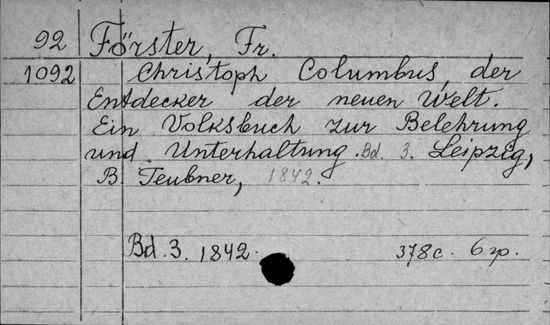 92 Förster, Fr.
1092 Christoph Columbus, der
Entdecker der neuen Welt.
Ein Volksbuch zur Belehrung
und Unterhaltung. Bd. 3. Leipzig,
B. Teubner, 1842.
Bd. 3. 1842. 378c. 6 гр.